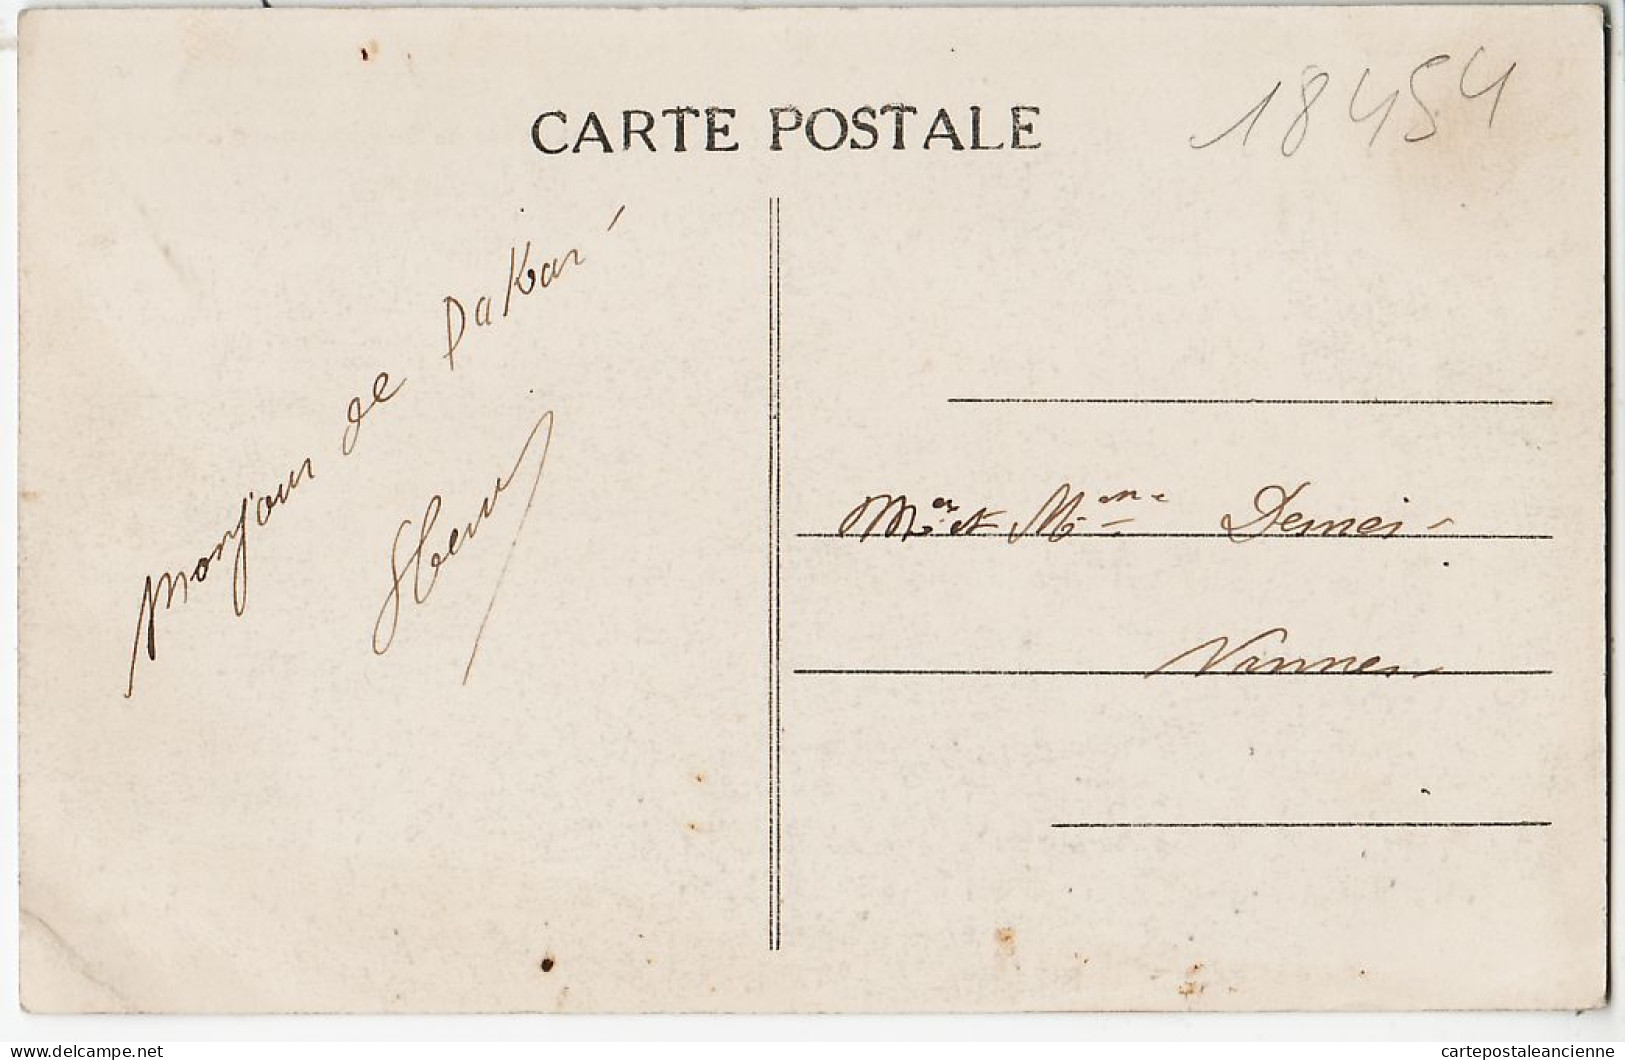 CARTE POSTALE
18454
Monjour de Dakar
Mr et Mme
Vannes
delcampe.net
cartepostaleancienne